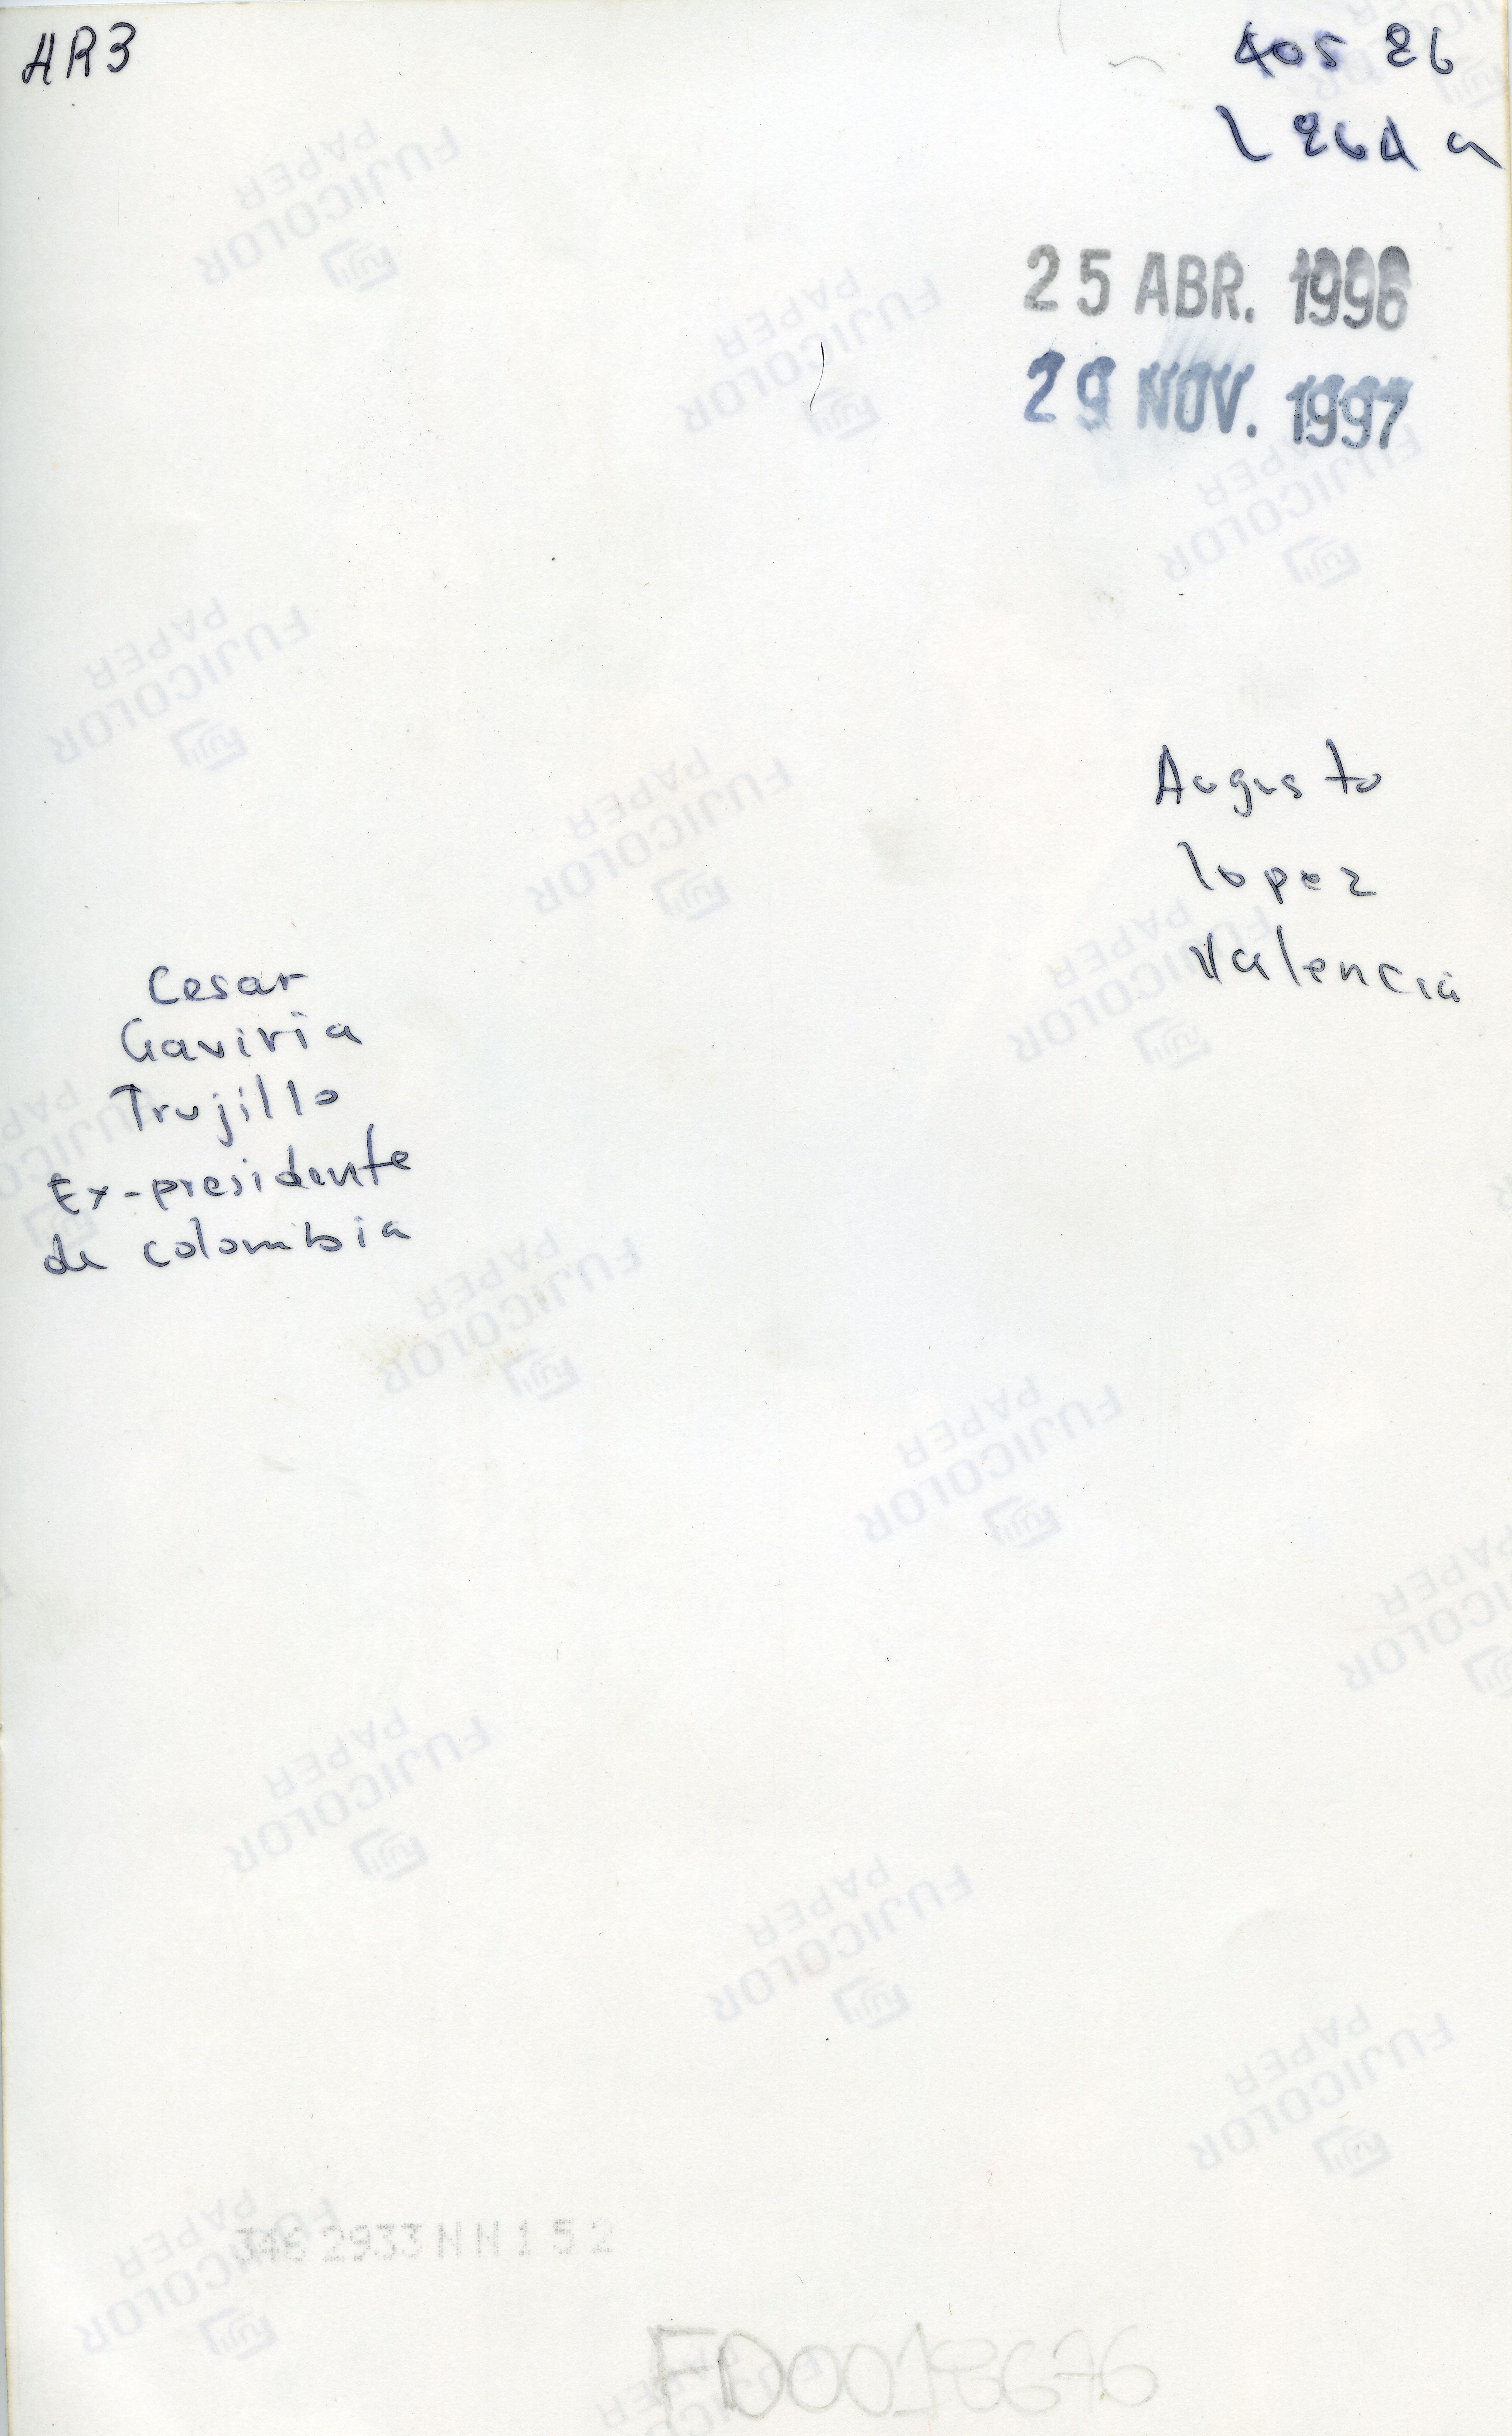 AR3
405 26
L 864 a
25 ABR. 1996
29 NOV. 1997
Augusto
lopez
Valencia
Cesar
Gaviria
Trujillo
Ex-presidente
de colombia
FUJICOLOR
PAPER
2933 N N 1 5 2
FD0018676